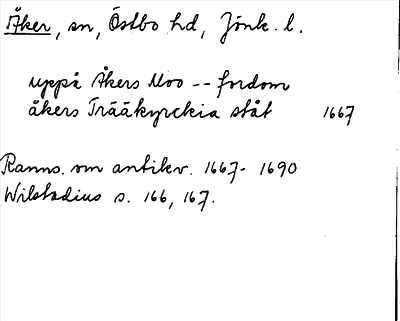 Åker, sn, Östbo hd, Jönk. l.
uppå Åkers Moo -- fordom
åkers Trääkyrckia ståt 1667
Ranns. om antikv. 1667- 1690
Wilstadius s. 166, 167.